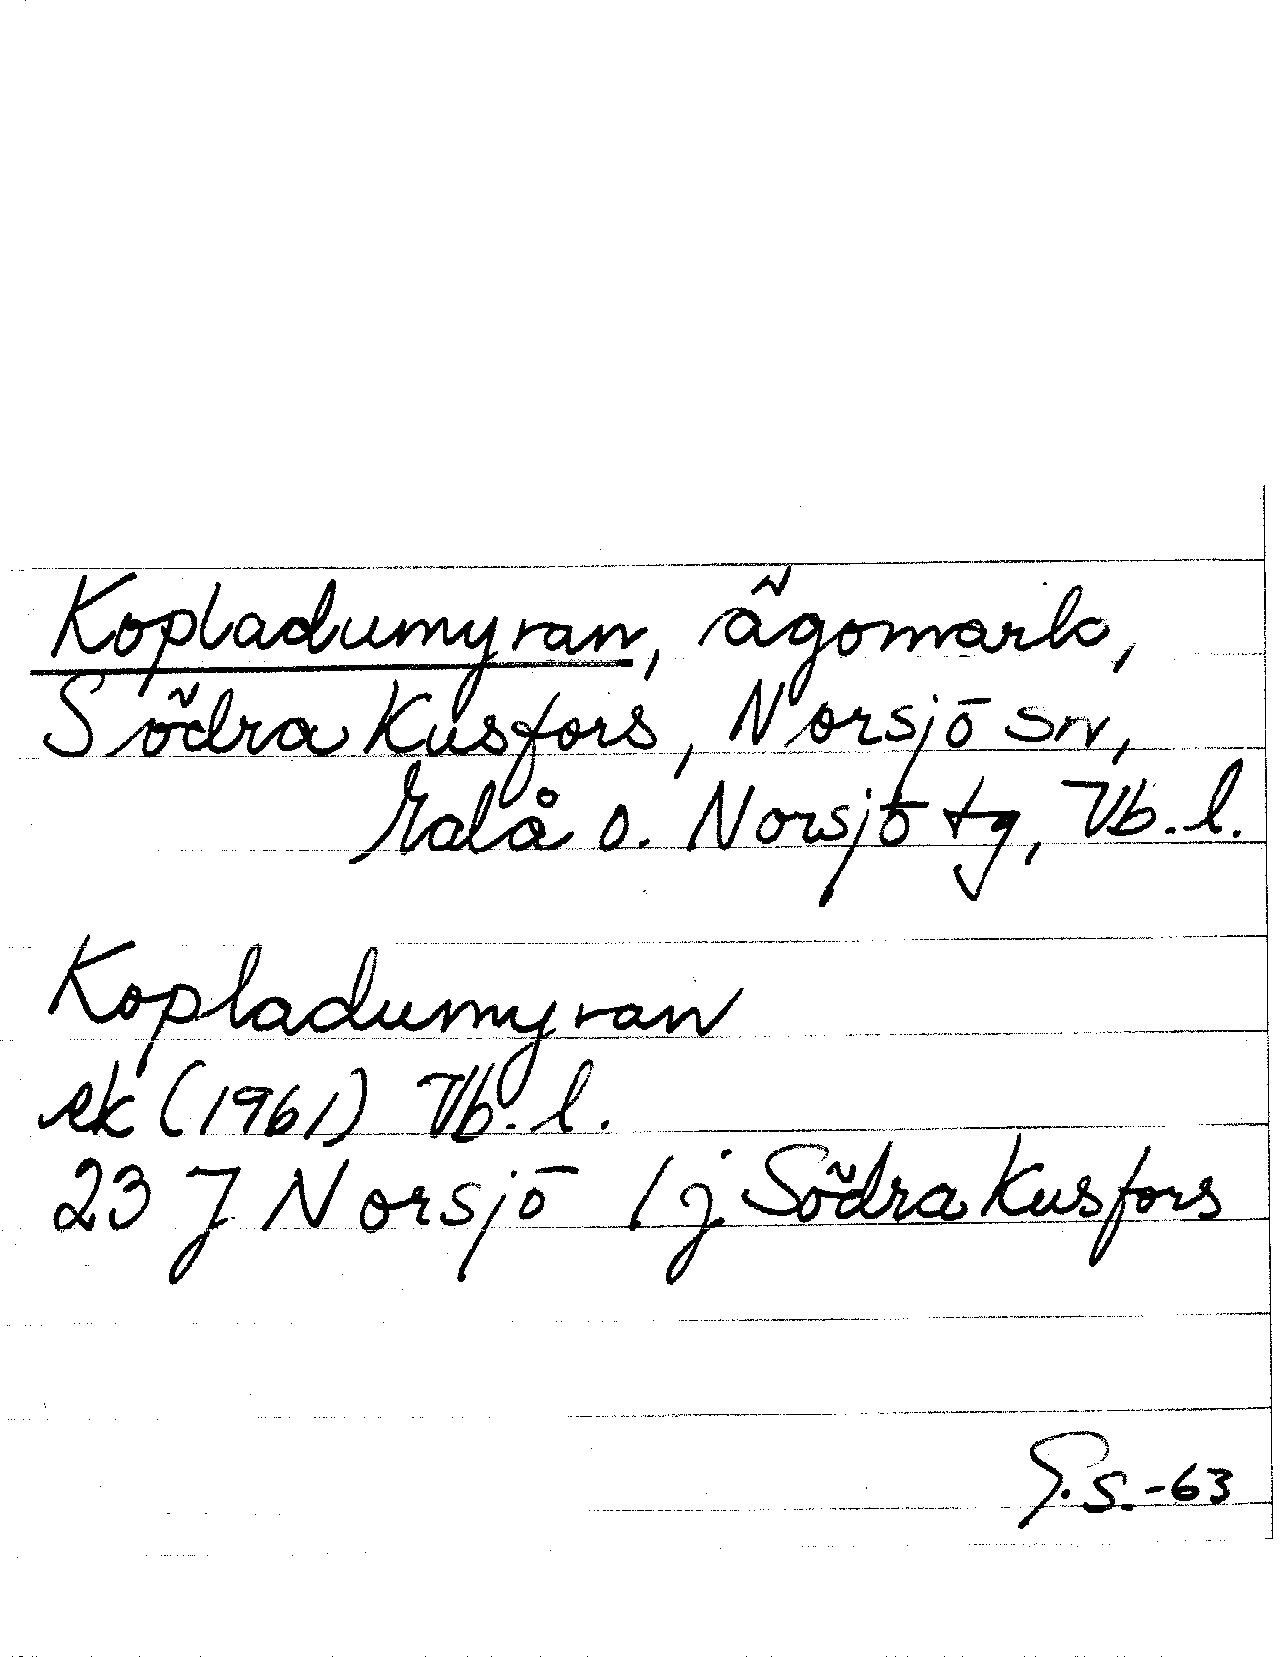 Kopladumyran, ägomark,
Södra Kusfors, Norsjö sn,
Malå o. Norsjö tg, Vb. l.
Kopladumyran
ek (1961) Vb. l.
23 J Norsjö 1 j Södra Kusfors
G.S.-63